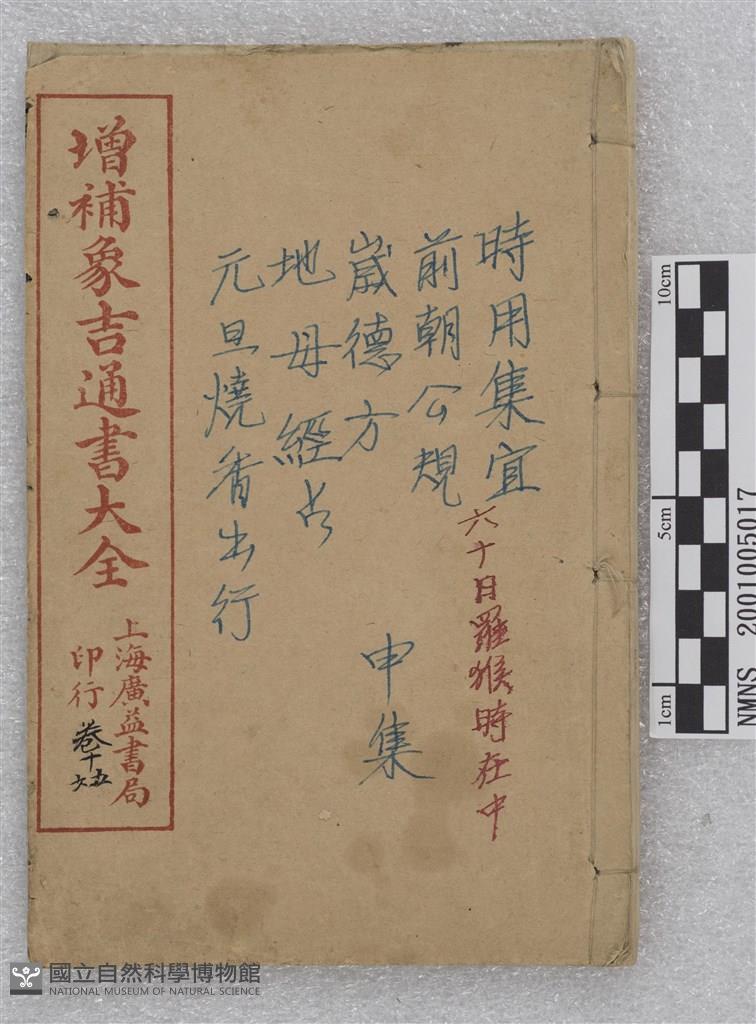 時用集宜
六十日羅猴時在中
前朝公規
崴德方
地母經占
元旦燒香出行
申集
增補象吉通書大全
上海廣益書局
印行
卷十五
六
10cm
5cm
1cm
NMNS 20010050​17
國立自然科學博物館
NATIONAL MUSEUM OF NATURAL SCIENCE